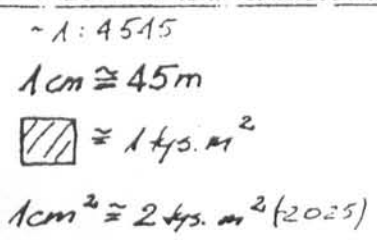 ~ 1 : 4515
1 cm ≅ 45 m
≅ 1 tys. m²
1 cm² ≅ 2 tys. m² (2025)